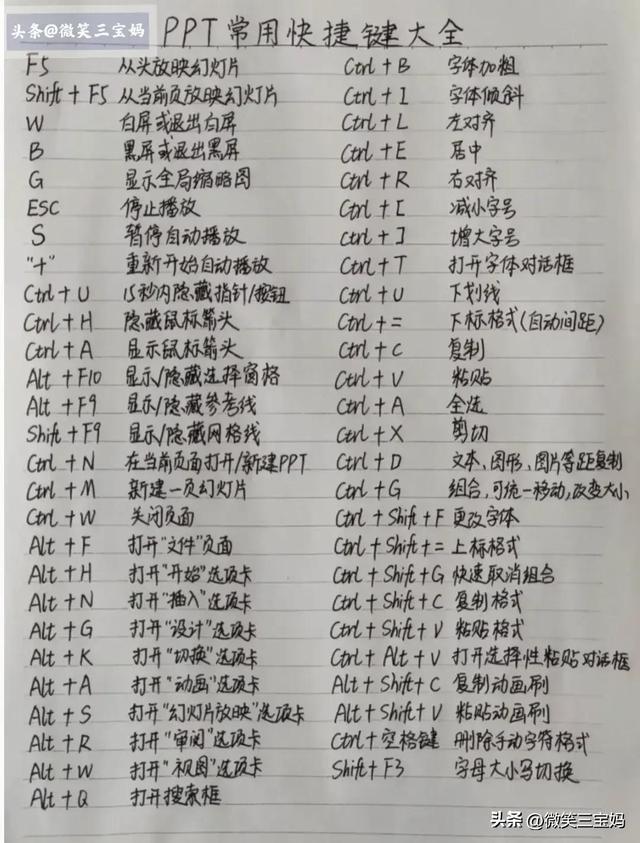 头条@微笑三宝妈
PPT常用快捷键大全
F5 从头放映幻灯片
Shift + F5 从当前页放映幻灯片
W 白屏或退出白屏
B 黑屏或退出黑屏
G 显示全局缩略图
ESC 停止播放
S 暂停自动播放
"+" 重新开始自动播放
Ctrl + U 15秒内隐藏指针/按钮
Ctrl + H 隐藏鼠标箭头
Ctrl + A 显示鼠标箭头
Alt + F10 显示/隐藏选择窗格
Alt + F9 显示/隐藏参考线
Shift + F9 显示/隐藏网格线
Ctrl + N 在当前页面打开/新建PPT
Ctrl + M 新建一页幻灯片
Ctrl + W 关闭页面
Alt + F 打开"文件"页面
Alt + H 打开"开始"选项卡
Alt + N 打开"插入"选项卡
Alt + G 打开"设计"选项卡
Alt + K 打开"切换"选项卡
Alt + A 打开"动画"选项卡
Alt + S 打开"幻灯片放映"选项卡
Alt + R 打开"审阅"选项卡
Alt + W 打开"视图"选项卡
Alt + Q 打开搜索框
Ctrl + B 字体加粗
Ctrl + I 字体倾斜
Ctrl + L 左对齐
Ctrl + E 居中
Ctrl + R 右对齐
Ctrl + [ 减小字号
Ctrl + ] 增大字号
Ctrl + T 打开字体对话框
Ctrl + U 下划线
Ctrl + = 下标格式(自动间距)
Ctrl + C 复制
Ctrl + V 粘贴
Ctrl + A 全选
Ctrl + X 剪切
Ctrl + D 文本、图形、图片等距复制
Ctrl + G 组合,可统一移动,改变大小
Ctrl + Shift + F 更改字体
Ctrl + Shift + = 上标格式
Ctrl + Shift + G 快速取消组合
Ctrl + Shift + C 复制格式
Ctrl + Shift + V 粘贴格式
Ctrl + Alt + V 打开选择性粘贴对话框
Alt + Shift + C 复制动画刷
Alt + Shift + V 粘贴动画刷
Ctrl + 空格键 删除手动字符格式
Shift + F3 字母大小写切换
头条@微笑三宝妈